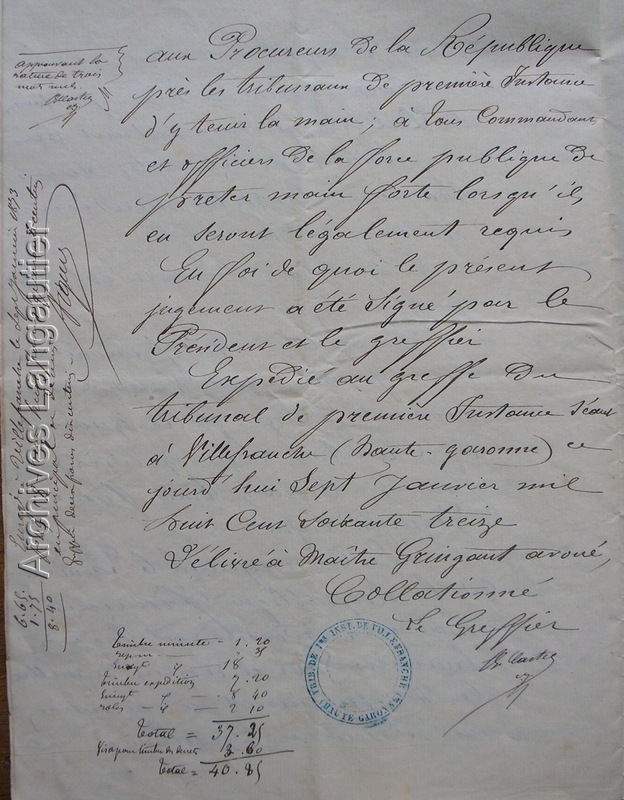 aux Procureurs de la République
près les tribunaux de première Instance
d'y tenir la main; à tous Commandants
et officiers de la force publique de
preter main forte lorsqu'ils
en seront légalement requis
En foi de quoi le présent
jugement a été Signé par le
Président et le greffier
Expédié au greffe du
tribunal de première Instance Séant
à Villefranche (Haute-garonne) ce
jourd'hui Sept Janvier mil
huit Cent Soixante treize
Délivré à Maître Gringaut avoué,
Collationné
Le Greffier
approuvant la
rature de trois
mots nuls
à Villefranche le Sept janvier 1873
6.65
1.75
8.40
Timbre minute - 1.20
18
Timbre expedition 7.20
8 40
roles 2 10
Total = 37.25
Visa pour timbre 3.60
Total = 40.85
TRIB. DE 1re INST. DE VILLEFRANCHE
(HAUTE GARONNE)
Archives Langautier